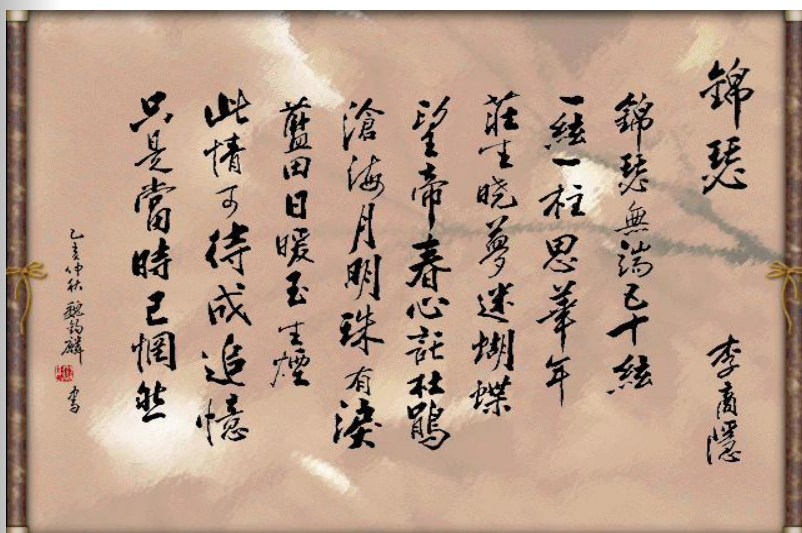 錦瑟
李商隱
錦瑟無端五十絃
一絃一柱思華年
莊生曉夢迷蝴蝶
望帝春心託杜鵑
滄海月明珠有淚
藍田日暖玉生煙
此情可待成追憶
只是當時已惘然
乙亥仲秋 魏 麟 書